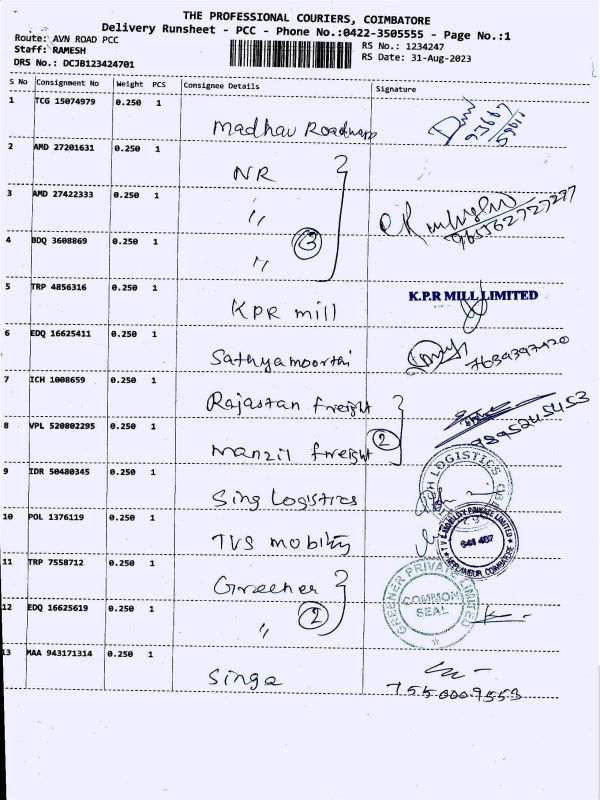 THE PROFESSIONAL COURIERS, COIMBATORE
Delivery Runsheet - PCC - Phone No.:0422-3505555 - Page No.:1
Route: AVN ROAD PCC
RS No.: 1234247
Staff: RAMESH
RS Date: 31-Aug-2023
DRS No.: DCJB123424701
S No Consignment No Weight PCS Consignee Details Signature
1 TCG 15074979 0.250 1 Madhav Roadways
2 AMD 27201631 0.250 1 NR
3 AMD 27422333 0.250 1 "
4 BDQ 3608869 0.250 1 " 3
5 TRP 4856316 0.250 1 KPR mill K.P.R MILL LIMITED
6 EDQ 16625411 0.250 1 Sathyamoorthi 7639397420
7 ICH 1008659 0.250 1 Rajastan freight
8 VPL 520802295 0.250 1 Manzil freight 2 9895245453
9 IDR 50480345 0.250 1 Sing Logistics LOGISTICS
10 POL 1376119 0.250 1 TVS mobility TVS MOBILITY PRIVATE LIMITED 641 407 NEELAMBUR, COIMBATORE
11 TRP 7558712 0.250 1 Greener GREENER PRIVATE LIMITED COMMON SEAL
12 EDQ 16625619 0.250 1 " 2
13 MAA 943171314 0.250 1 Singa 7550009553